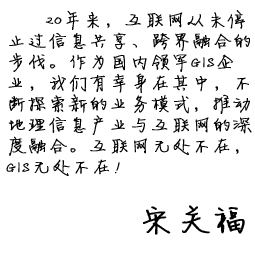 20年来，互联网从未停
止过信息共享、跨界融合的
步伐。作为国内领军GIS企
业，我们有幸身在其中，不
断探索新的业务模式，推动
地理信息产业与互联网的深
度融合。互联网无处不在，
GIS无处不在！
宋关福